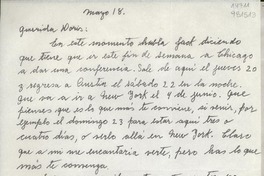 mayo 18.
Querida Doris:
En este momento habla Jack diciendo
que tiene que ir este fin de semana a Chicago
a dar una conferencia. Sale de aquí el jueves 20
y regresa a Austin el sábado 22 en la noche.
que va a ir a New York el 4 de junio. Que
pienses qué es lo que más te conviene, si venir, por
ejemplo el domingo 23 para estar aquí tres o
cuatro días, o verlo allá en New York. Claro
que a mí me encantaría verte, pero haz lo que
más te convenga